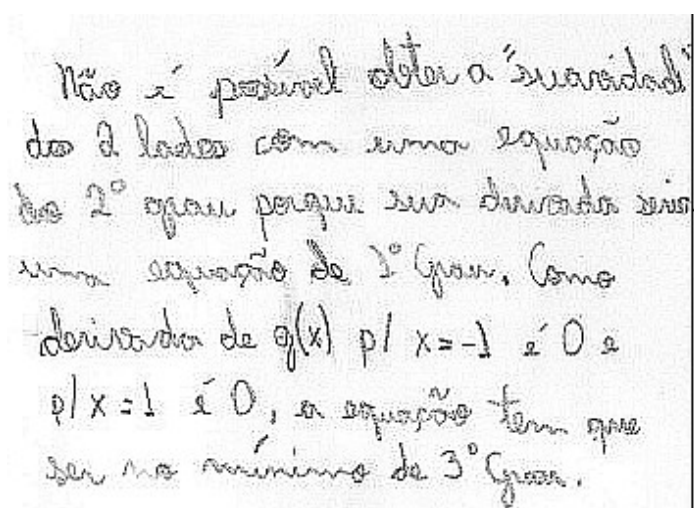 Não é possível obter a "suavidade"
dos 2 lados com uma equação
do 2º grau porque sua derivada seria
uma equação de 1º Grau. Como
derivada de g(x) p/ x = -1 é 0 e
p/ x = 1 é 0, a equação tem que
ser no mínimo de 3º Grau.